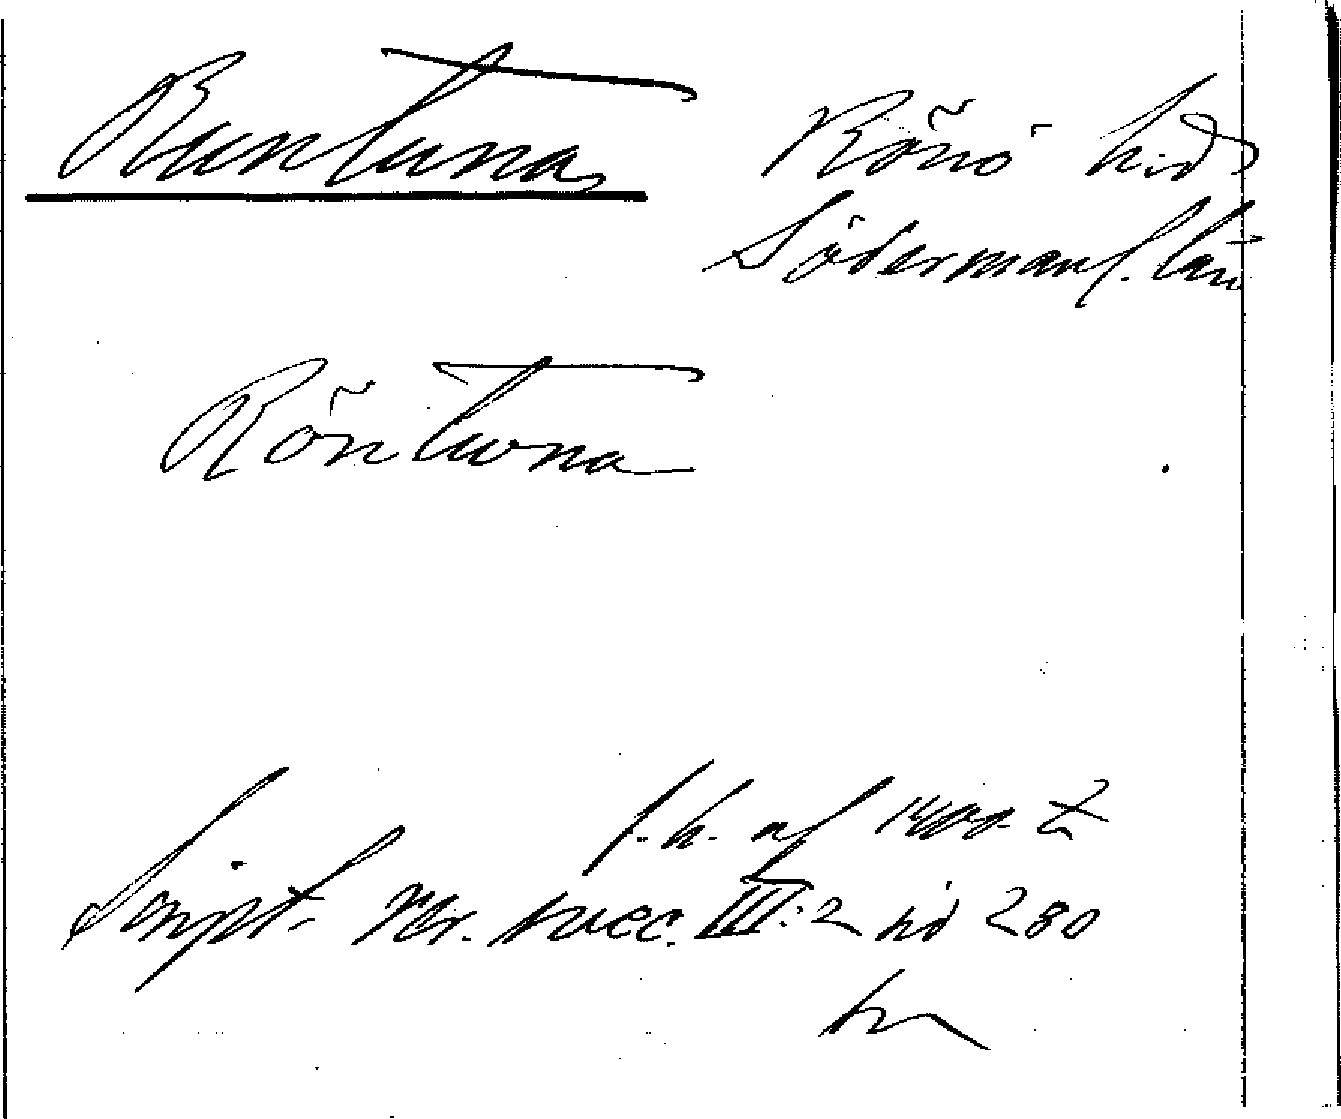 Runtuna, Rönö hd
Södermanl. län
Röntuna
f. h. af 1400 t
Script. rer. svec. III: 2 sid 280